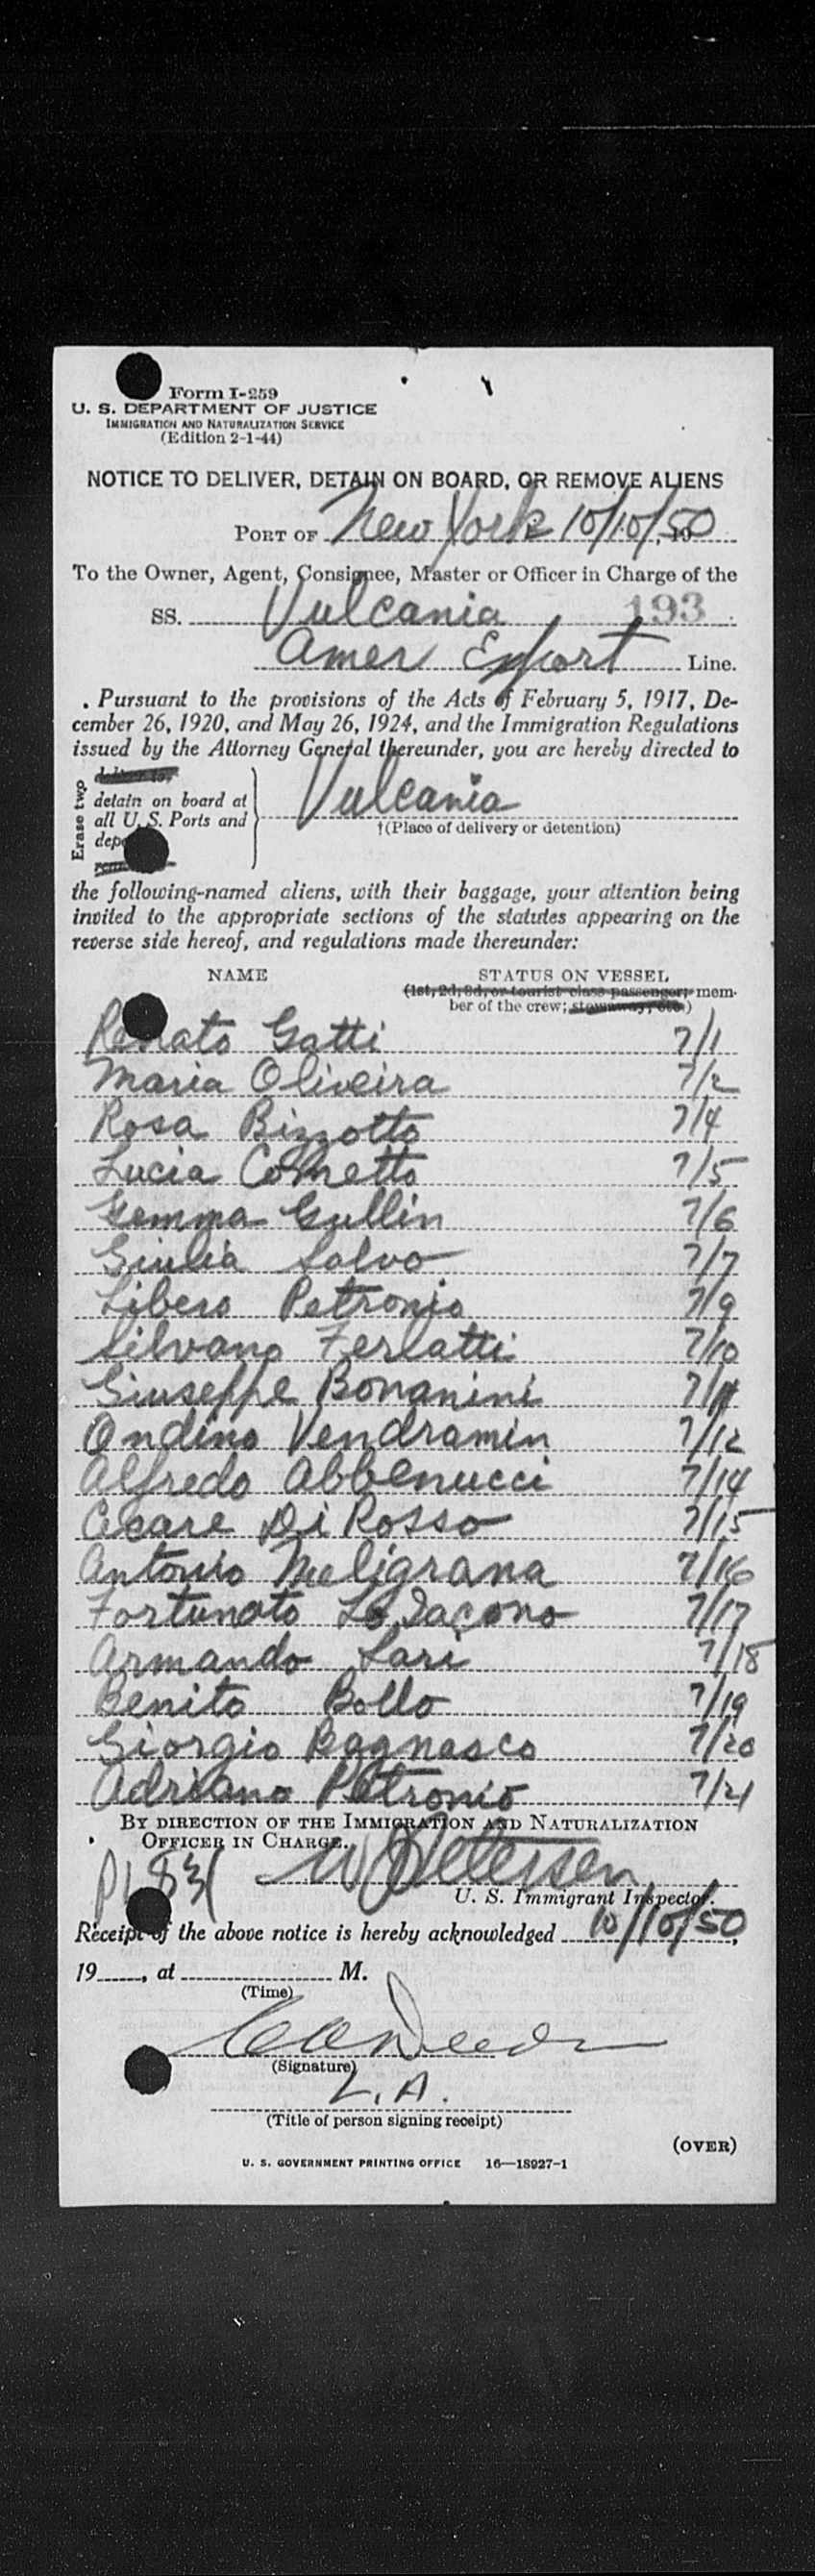 Form I-259
U. S. DEPARTMENT OF JUSTICE
IMMIGRATION AND NATURALIZATION SERVICE
(Edition 2-1-44)
NOTICE TO DELIVER, DETAIN ON BOARD, OR REMOVE ALIENS
PORT OF New York 10/10/50, 19
To the Owner, Agent, Consignee, Master or Officer in Charge of the
SS. Vulcania 193
Amer Export Line.
Pursuant to the provisions of the Acts of February 5, 1917, De-
cember 26, 1920, and May 26, 1924, and the Immigration Regulations
issued by the Attorney General thereunder, you are hereby directed to
Erase two
detain on board at
all U. S. Ports and
Vulcania
†(Place of delivery or detention)
the following-named aliens, with their baggage, your attention being
invited to the appropriate sections of the statutes appearing on the
reverse side hereof, and regulations made thereunder:
NAME STATUS ON VESSEL
(1st, 2d, 3d, or tourist class passenger; mem-
ber of the crew; stowaway, etc.)
Renato Gatti 7/1
Maria Oliveira 7/2
Rosa Bizzotto 7/4
Lucia Cometto 7/5
Gemma Gullin 7/6
Giulia Salvo 7/7
Libero Petronio 7/9
Silvano Ferlatti 7/10
Giuseppe Bonanini 7/11
Ondino Vendramin 7/12
Alfredo Abbenucci 7/14
Cesare Di Rosso 7/15
Antonio Meligrana 7/16
Fortunato Lo Iacono 7/17
Armando Lari 7/18
Benito Bollo 7/19
Giorgio Bagnasco 7/20
Adriano Petronio 7/21
BY DIRECTION OF THE IMMIGRATION AND NATURALIZATION
OFFICER IN CHARGE.
W Petersen
U. S. Immigrant Inspector.
Receipt of the above notice is hereby acknowledged 10/10/50,
19, at M.
(Time)
(Signature)
L.A.
(Title of person signing receipt)
(OVER)
U. S. GOVERNMENT PRINTING OFFICE 16—18927-1